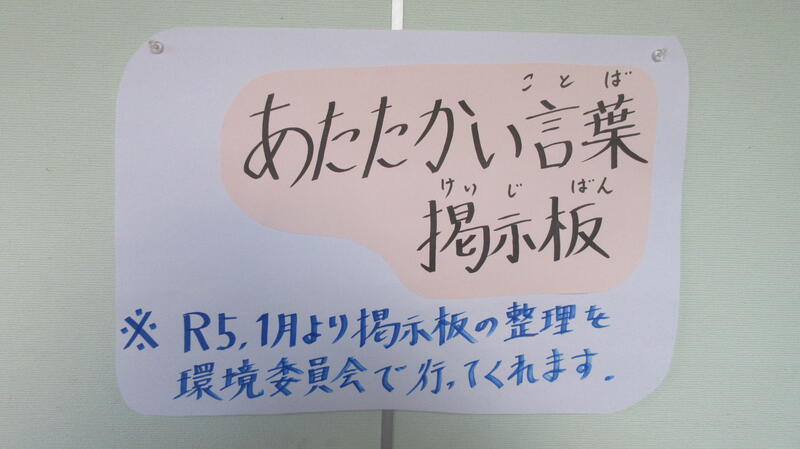 ことば
あたたかい言葉
けいじばん
掲示板
※ R5,1月より掲示板の整理を
環境委員会で行ってくれます.